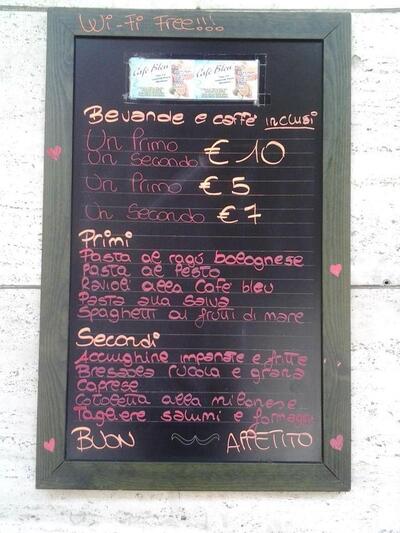 Wi-Fi Free!!!
Cafe Bleu Cafe Bleu
Bevande e caffè inclusi
Un Primo
Un Secondo € 10
Un Primo € 5
Un Secondo € 7
Primi
Pasta al ragù bolognese
Pasta al Pesto
Ravioli alla Cafè bleu
Pasta alla Salva
Spaghetti ai frutti di mare
Secondi
Acciughine impanate e fritte
Bresaola rucola e grana
Caprese
Cotoletta alla milanese
Tagliere salumi e formaggi
BUON APPETITO